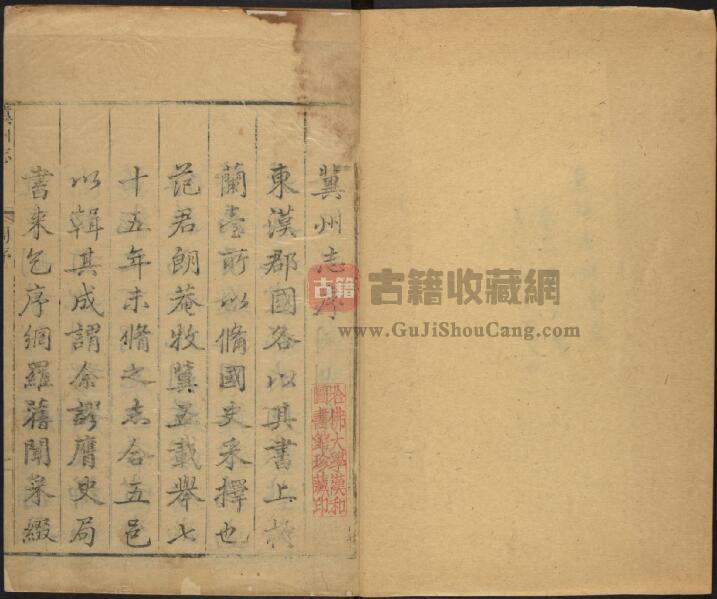 冀州志序
東漢郡國各以其書上於
蘭臺所以備國史采擇也
范君朗菴牧冀五載舉七
十五年未脩之志合五邑
以輯其成謂余謬膺史局
書来乞序網羅舊聞采綴
冀州志
序
哈佛大學漢和
圖書館珍藏印
古籍
古籍收藏網
www.GuJiShouCang.com